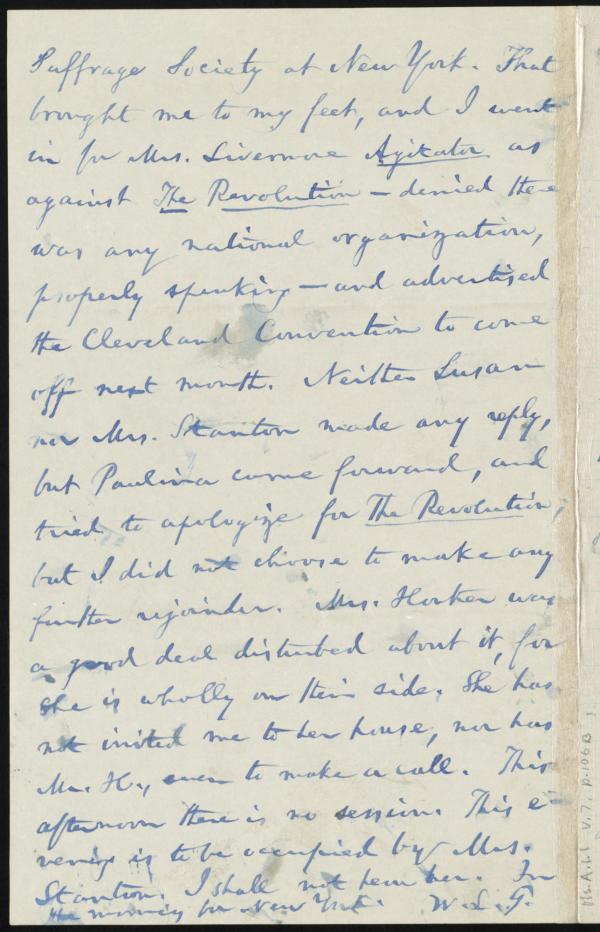 Suffrage Society at New York. That
brought me to my feet, and I went
in for Mrs. Livermore Agitator as
against The Revolution — denied there
was any national organization,
properly speaking — and advertised
the Cleveland Convention to come
off next month. Neither Susan
nor Mrs. Stanton made any reply,
but Paulina came forward, and
tried to apologize for The Revolution;
but I did not choose to make any
further rejoinder. Mrs. Hooker was
a good deal disturbed about it, for
she is wholly on their side. She has
not invited me to her house, nor has
Mr. H., even to make a call. This
afternoon there is no session. This e-
vening is to be occupied by Mrs.
Stanton. I shall not hear her. In
the morning for New York. W. L. G.
Ms.A.1.1 V.7, p.106B